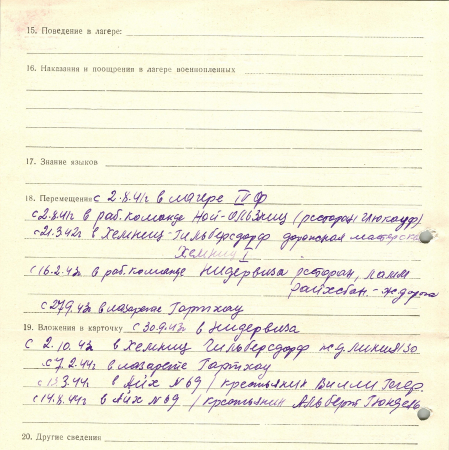 15. Поведение в лагере:
16. Наказания и поощрения в лагере военнопленных
17. Знание языков
18. Перемещения с 2.8.41г в лагере IV Ф
с 2.8.41г в раб. команде Ной-Ользниц (ресторан Глюкауф)
с 21.3.42г в Хемниц-Гильберсдорф дорожная
Хемниц I
с 16.2.43г в раб. команде Нидервиза ресторан,
райхсбан.-ж.дорога
с 27.9.43г в лазарете Гартхау
19. Вложения в карточку с 30.9.43г в Нидервиза
с 2.10.43г в Хемниц Гильберсдорф
с 7.2.44г в лазарете Гартхау
с 13.3.44г в Айх № 69 / крестьянин Вилли
с 14.8.44г в Айх № 69 / крестьянин Альберт Гюндель
20. Другие сведения